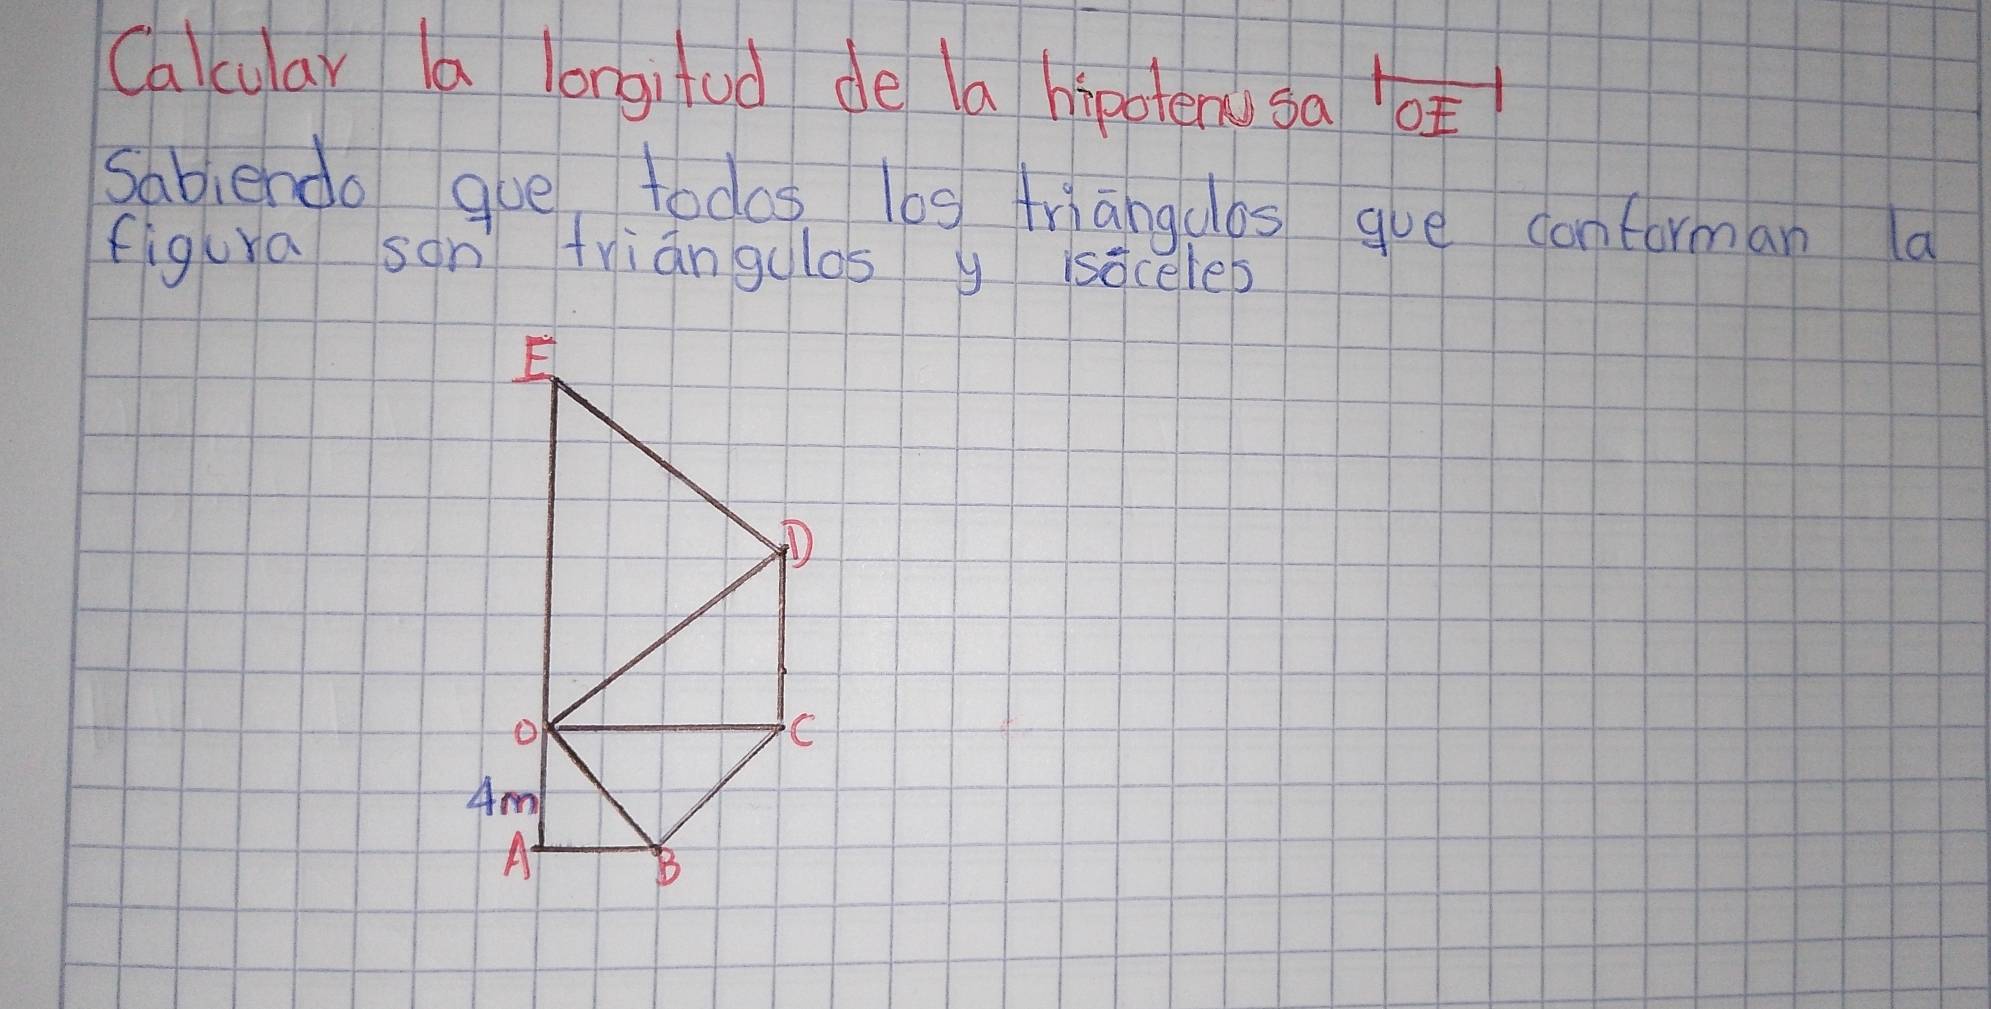 Calcular la longitud de la hipotenusa OE
Sabiendo que todos los triángulos que conforman la
figura son triángulos y isóceles
E
D
O
C
4m
A
B